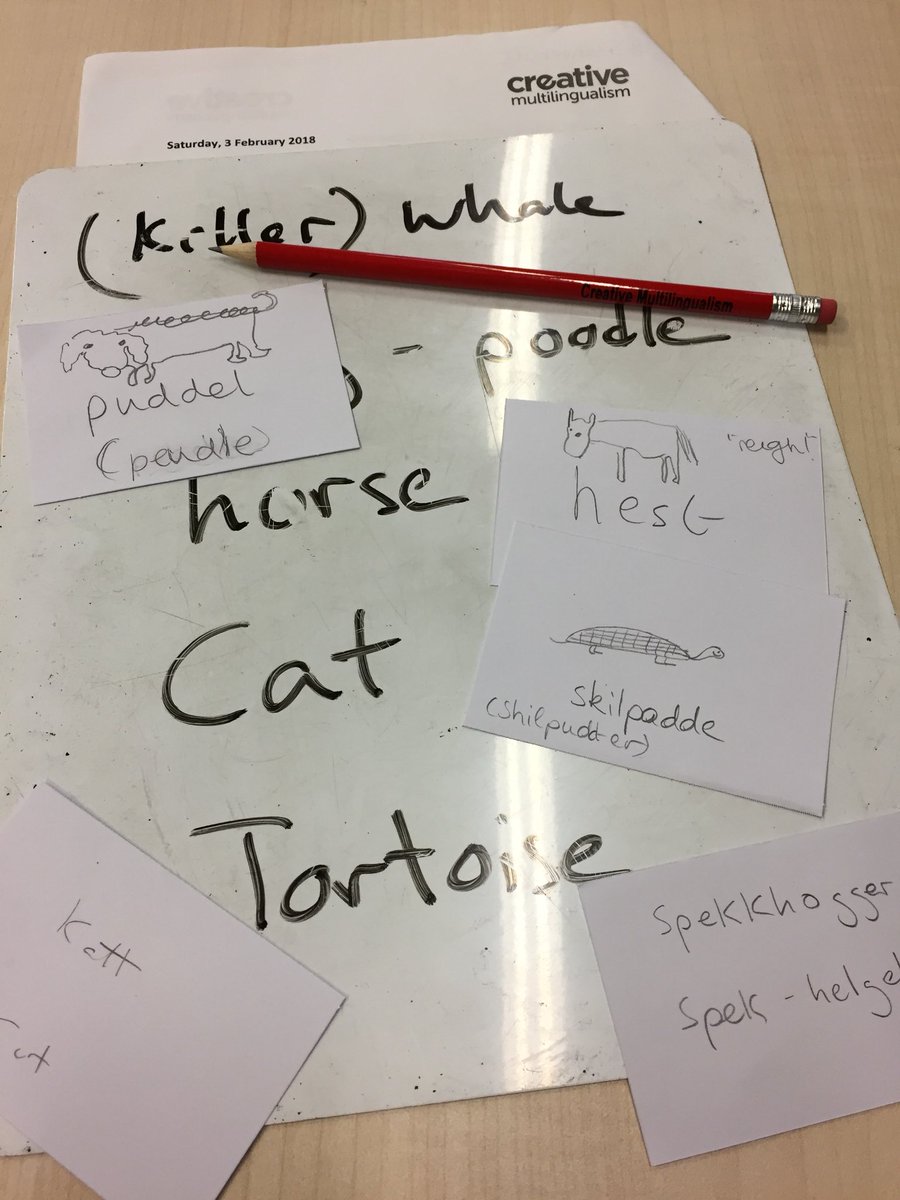 creative
multilingualism
Saturday, 3 February 2018
(Killer) whale
Creative Multilingualism
- poodle
puddel
(peudle)
horse
"neigh!"
hest
Cat
skilpadde
(Shilpudter)
Tortoise
Katt
Spekkhogger
Spek-helge